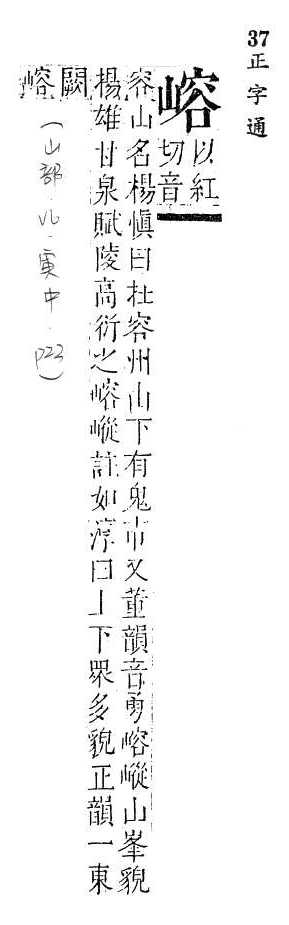 37正字通
嵱以紅切音
容山名楊慎曰杜容州山下有鬼市又董韻音勇嵱嵷山峯貌
楊雄甘泉賦陵高衍之嵱嵷註如淳曰上下眾多貌正韻一東
闕嵱
(山部.八.寅中.p23)